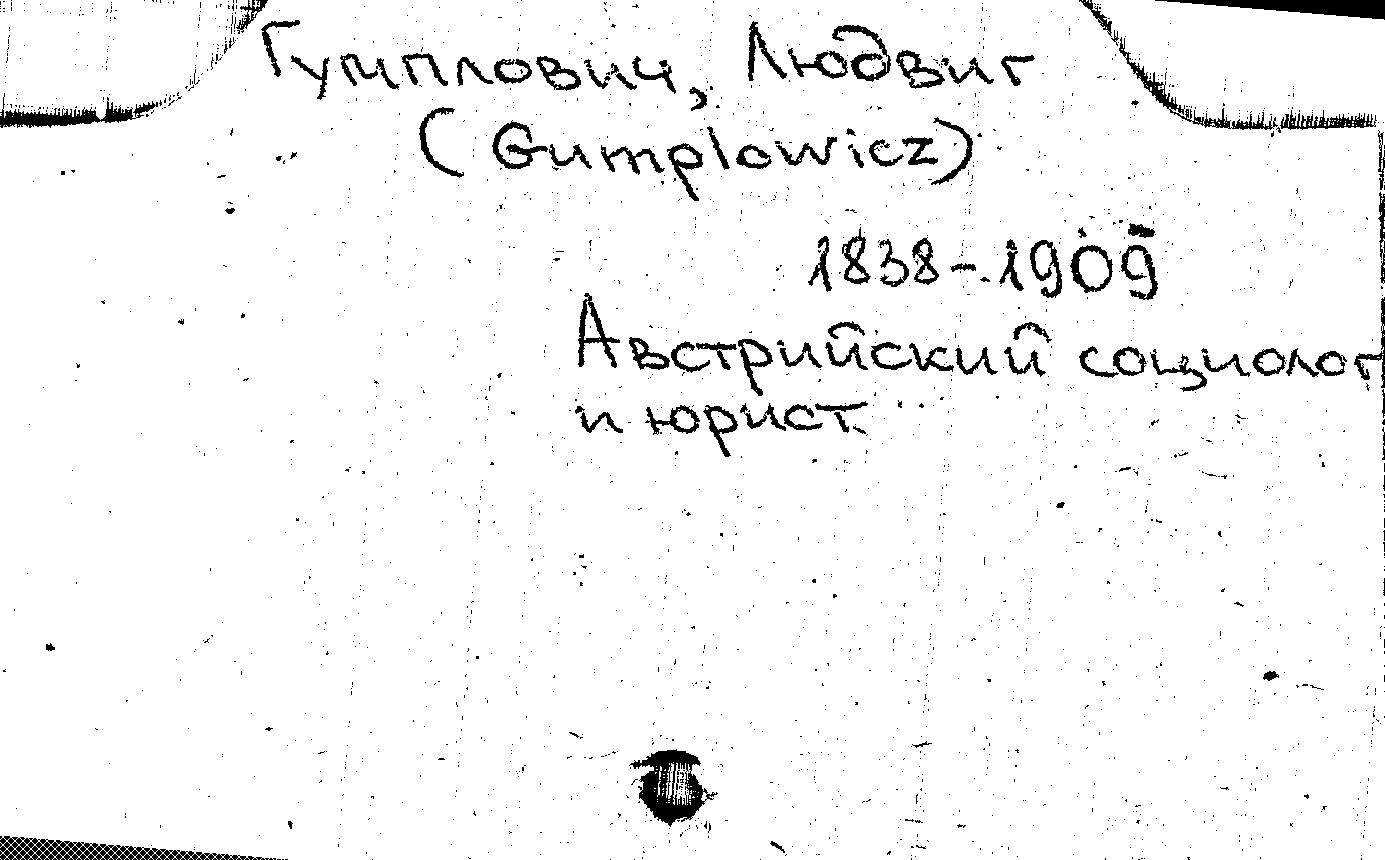 Гумплович, Людвиг
(Gumplowicz)
1838-1909
Австрийский социолог
и юрист.